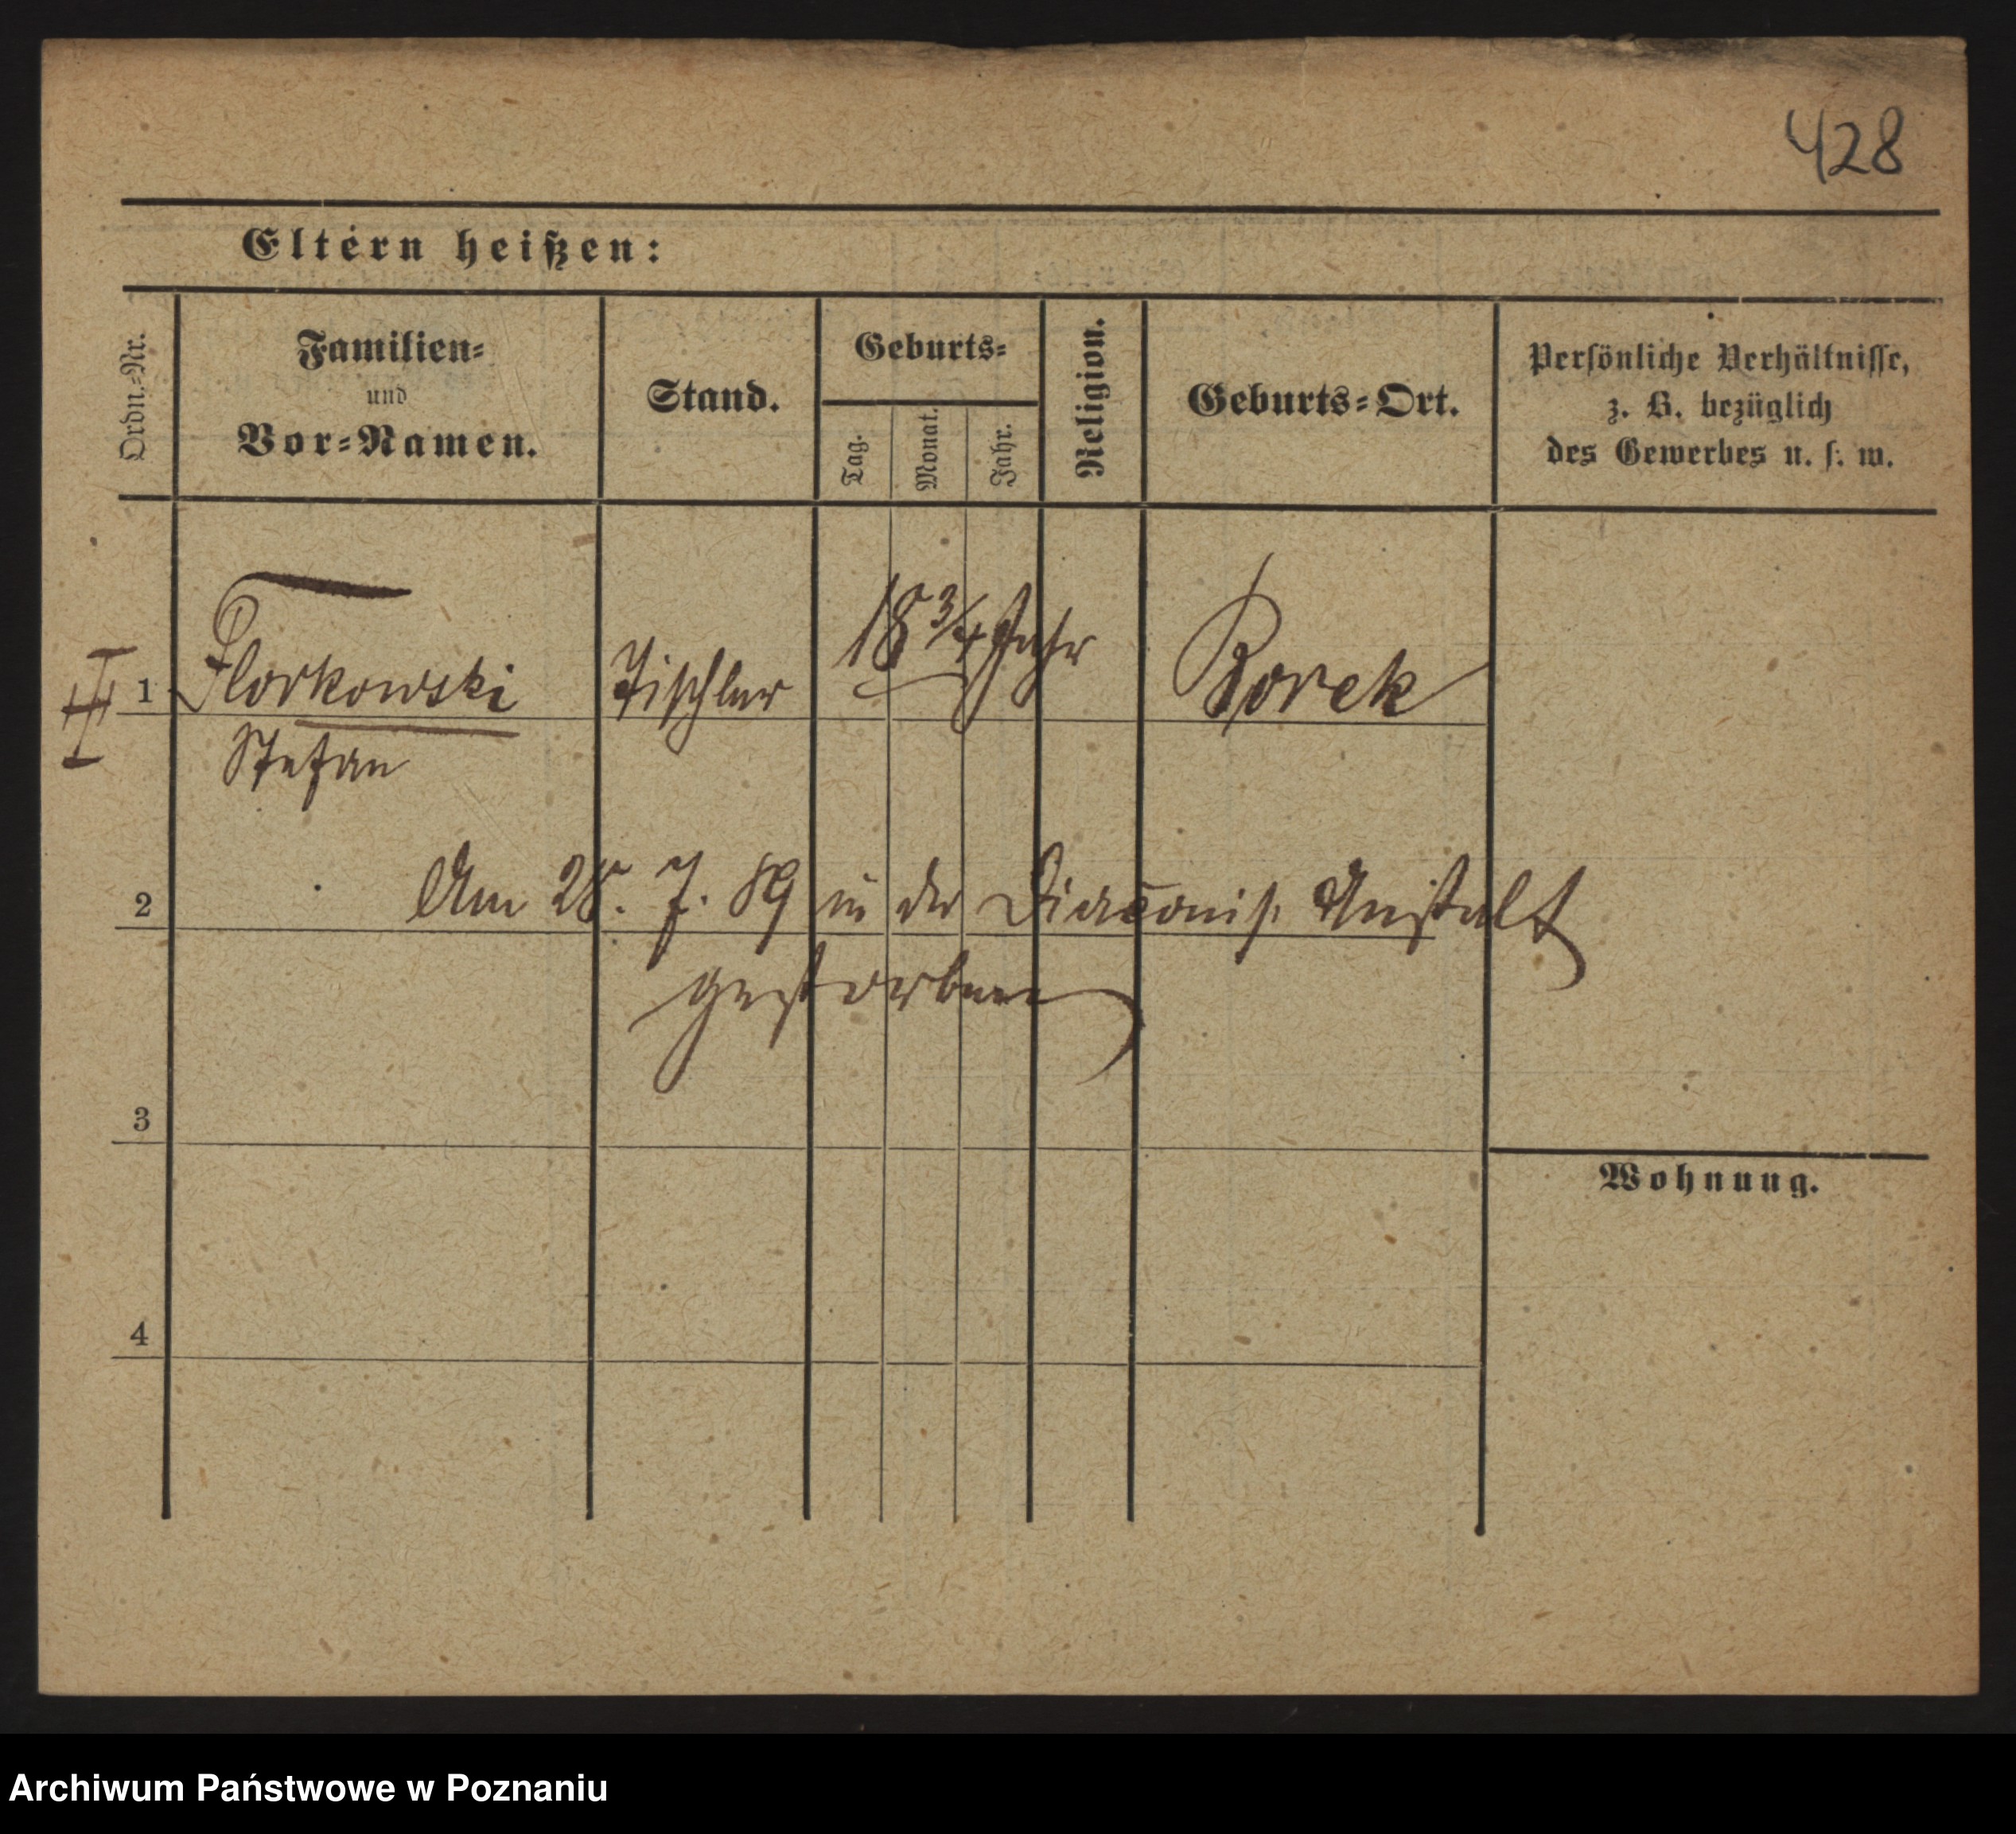 428
Eltern heißen:
Ordn.-Nr.
Familien-
und
Vor-Namen.
Stand.
Geburts-
Tag.
Monat.
Jahr.
Religion.
Geburts-Ort.
Persönliche Verhältnisse,
z. B. bezüglich
des Gewerbes u. s. w.
II
1 Florkowski Tischler 18 3/4 Jahr Borek
Stefan
2 Am 28. 7. 89 in der Diaconis. Anstalt
gestorben
3
Wohnung.
4
Archiwum Państwowe w Poznaniu